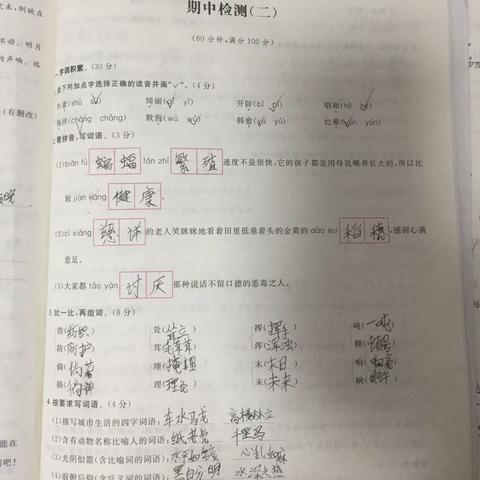 期中检测(二)
(60分钟,满分100分)
字词积累。(30分)
下列加点字选择正确的读音并画"√"。(4分)
朴素 绮丽 开辟(bì pì) 唱和(hè
徜徉(cháng chǎng) 欺侮(wú wǔ) 韩愈(yú yù) 红晕(yùn yūn)
2.看拼音,写词语。(3分)
(1)biān fú 蝙蝠 fán zhí 繁殖 速度不是很快,它的孩子都是用母乳喂养长大的,所以比
较 jiàn kāng 健康。
(2)cí xiáng 慈详 的老人笑眯眯地看着田里低垂着头的金黄的 dào suì 稻穗,感到心满
意足。
(3)大家都 tǎo yàn 讨厌 那种说话不留口德的恶毒之人。
3.比一比,再组词。(8分)
纺(纺织) 耸(耸立) 挥(挥手) 吨(一吨)
防(防护) 茸( 浑(浑浊) 顿(
倚( 埋(掩埋) 末(末日) 晌(
理(理论) 未(未来) 响(
4.按要求写词语。(4分)
(1)描写城市生活的四字词语:车水马龙 高楼林立
(2)含有动物名称比喻人的词语:纸老虎 千里马
(3)光阴似箭(含比喻词的词语): 心乱如麻
(4)前俯后仰(含反义词的词语):黑白分明 水深火热
来,倒映在
不动。明月
的声响。远
(有删改)
能在
们吧!